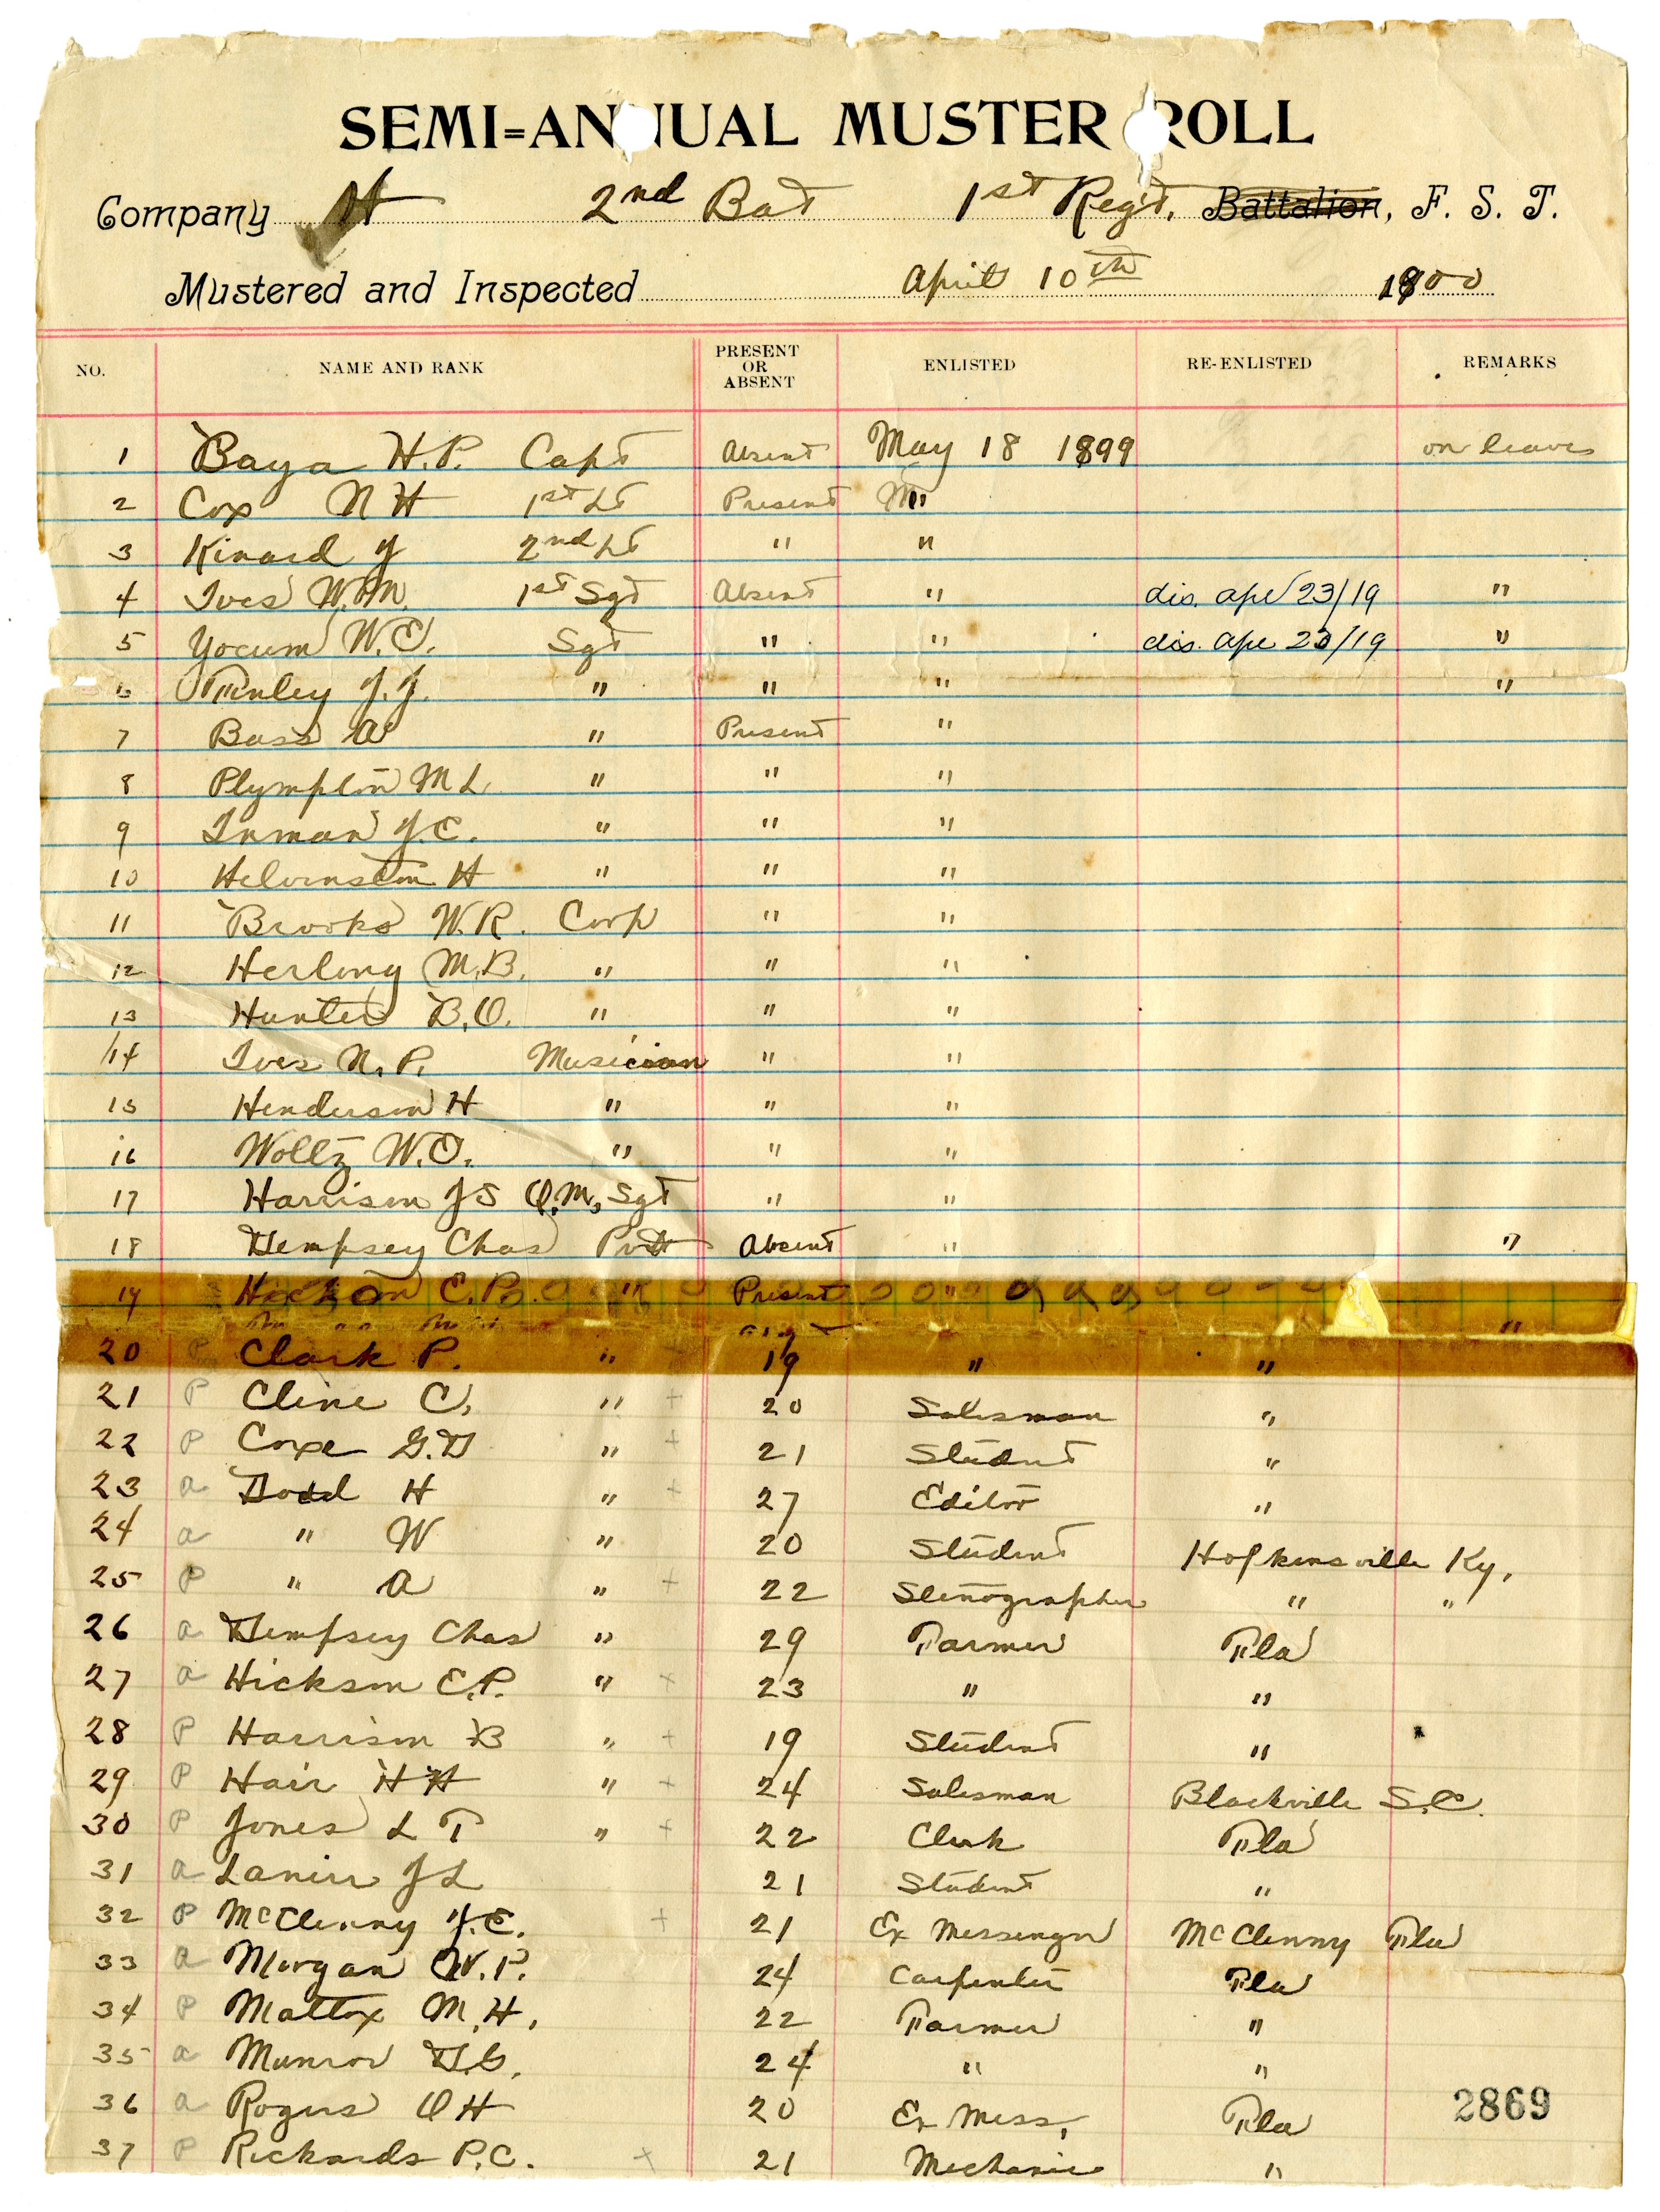 SEMI=ANNUAL MUSTER ROLL
Company H 2nd Bat 1st Reg't, Battalion, F. S. T.
Mustered and Inspected April 10th 1900
NO. NAME AND RANK PRESENT OR ABSENT ENLISTED RE-ENLISTED REMARKS
1 Baya H.P. Capt Absent May 18 1899 on leave
2 Cox N H 1st Lt Present "
3 Kinard J 2nd Lt " "
4 Ives W.M. 1st Sgt Absent " dis. ape 23/19 "
5 Yocum W.C. Sgt " " dis. ape 23/19 "
6 Finley J.J. " " " "
7 Bass A " Present "
8 Plympton M L " " "
9 Inman J.C. " " "
10 Helvenston H " " "
11 Brooks W.R. Corp " "
12 Herlong M.B. " " "
13 Hunter B.O. " " "
14 Ives N.P. Musician " "
15 Henderson H " " "
16 Woltz W.O. " " "
17 Harrison J S Q.M. Sgt " "
18 Dempsey Chas Pvt Absent " "
19 Hickson E.P. " Present "
"
20 P Clark P. " + 19 " "
21 P Cline C. " + 20 Salesman "
22 P Coxe G.D " + 21 Student "
23 a Dodd H " + 27 Editor "
24 a " W " 20 Student Hopkinsville Ky,
25 P " A " + 22 Stenographer " "
26 a Dempsey Chas " 29 Farmer Fla
27 a Hickson E.P. " + 23 " "
28 P Harrison B " + 19 Student "
29 P Hair H H " + 24 Salesman Blackville S.C.
30 P Jones L T " + 22 Clerk Fla
31 a Lanier J L 21 Student "
32 P McClenny J.E. + 21 Ex Messenger McClenny Fla
33 a Morgan W.P. 24 Carpenter Fla
34 P Mattox M.H. 22 Farmer "
35 a Munroe D.G. 24 " "
36 a Rogers O H 20 Ex Mess, Fla 2869
37 P Rickards P.C. + 21 Mechanic "